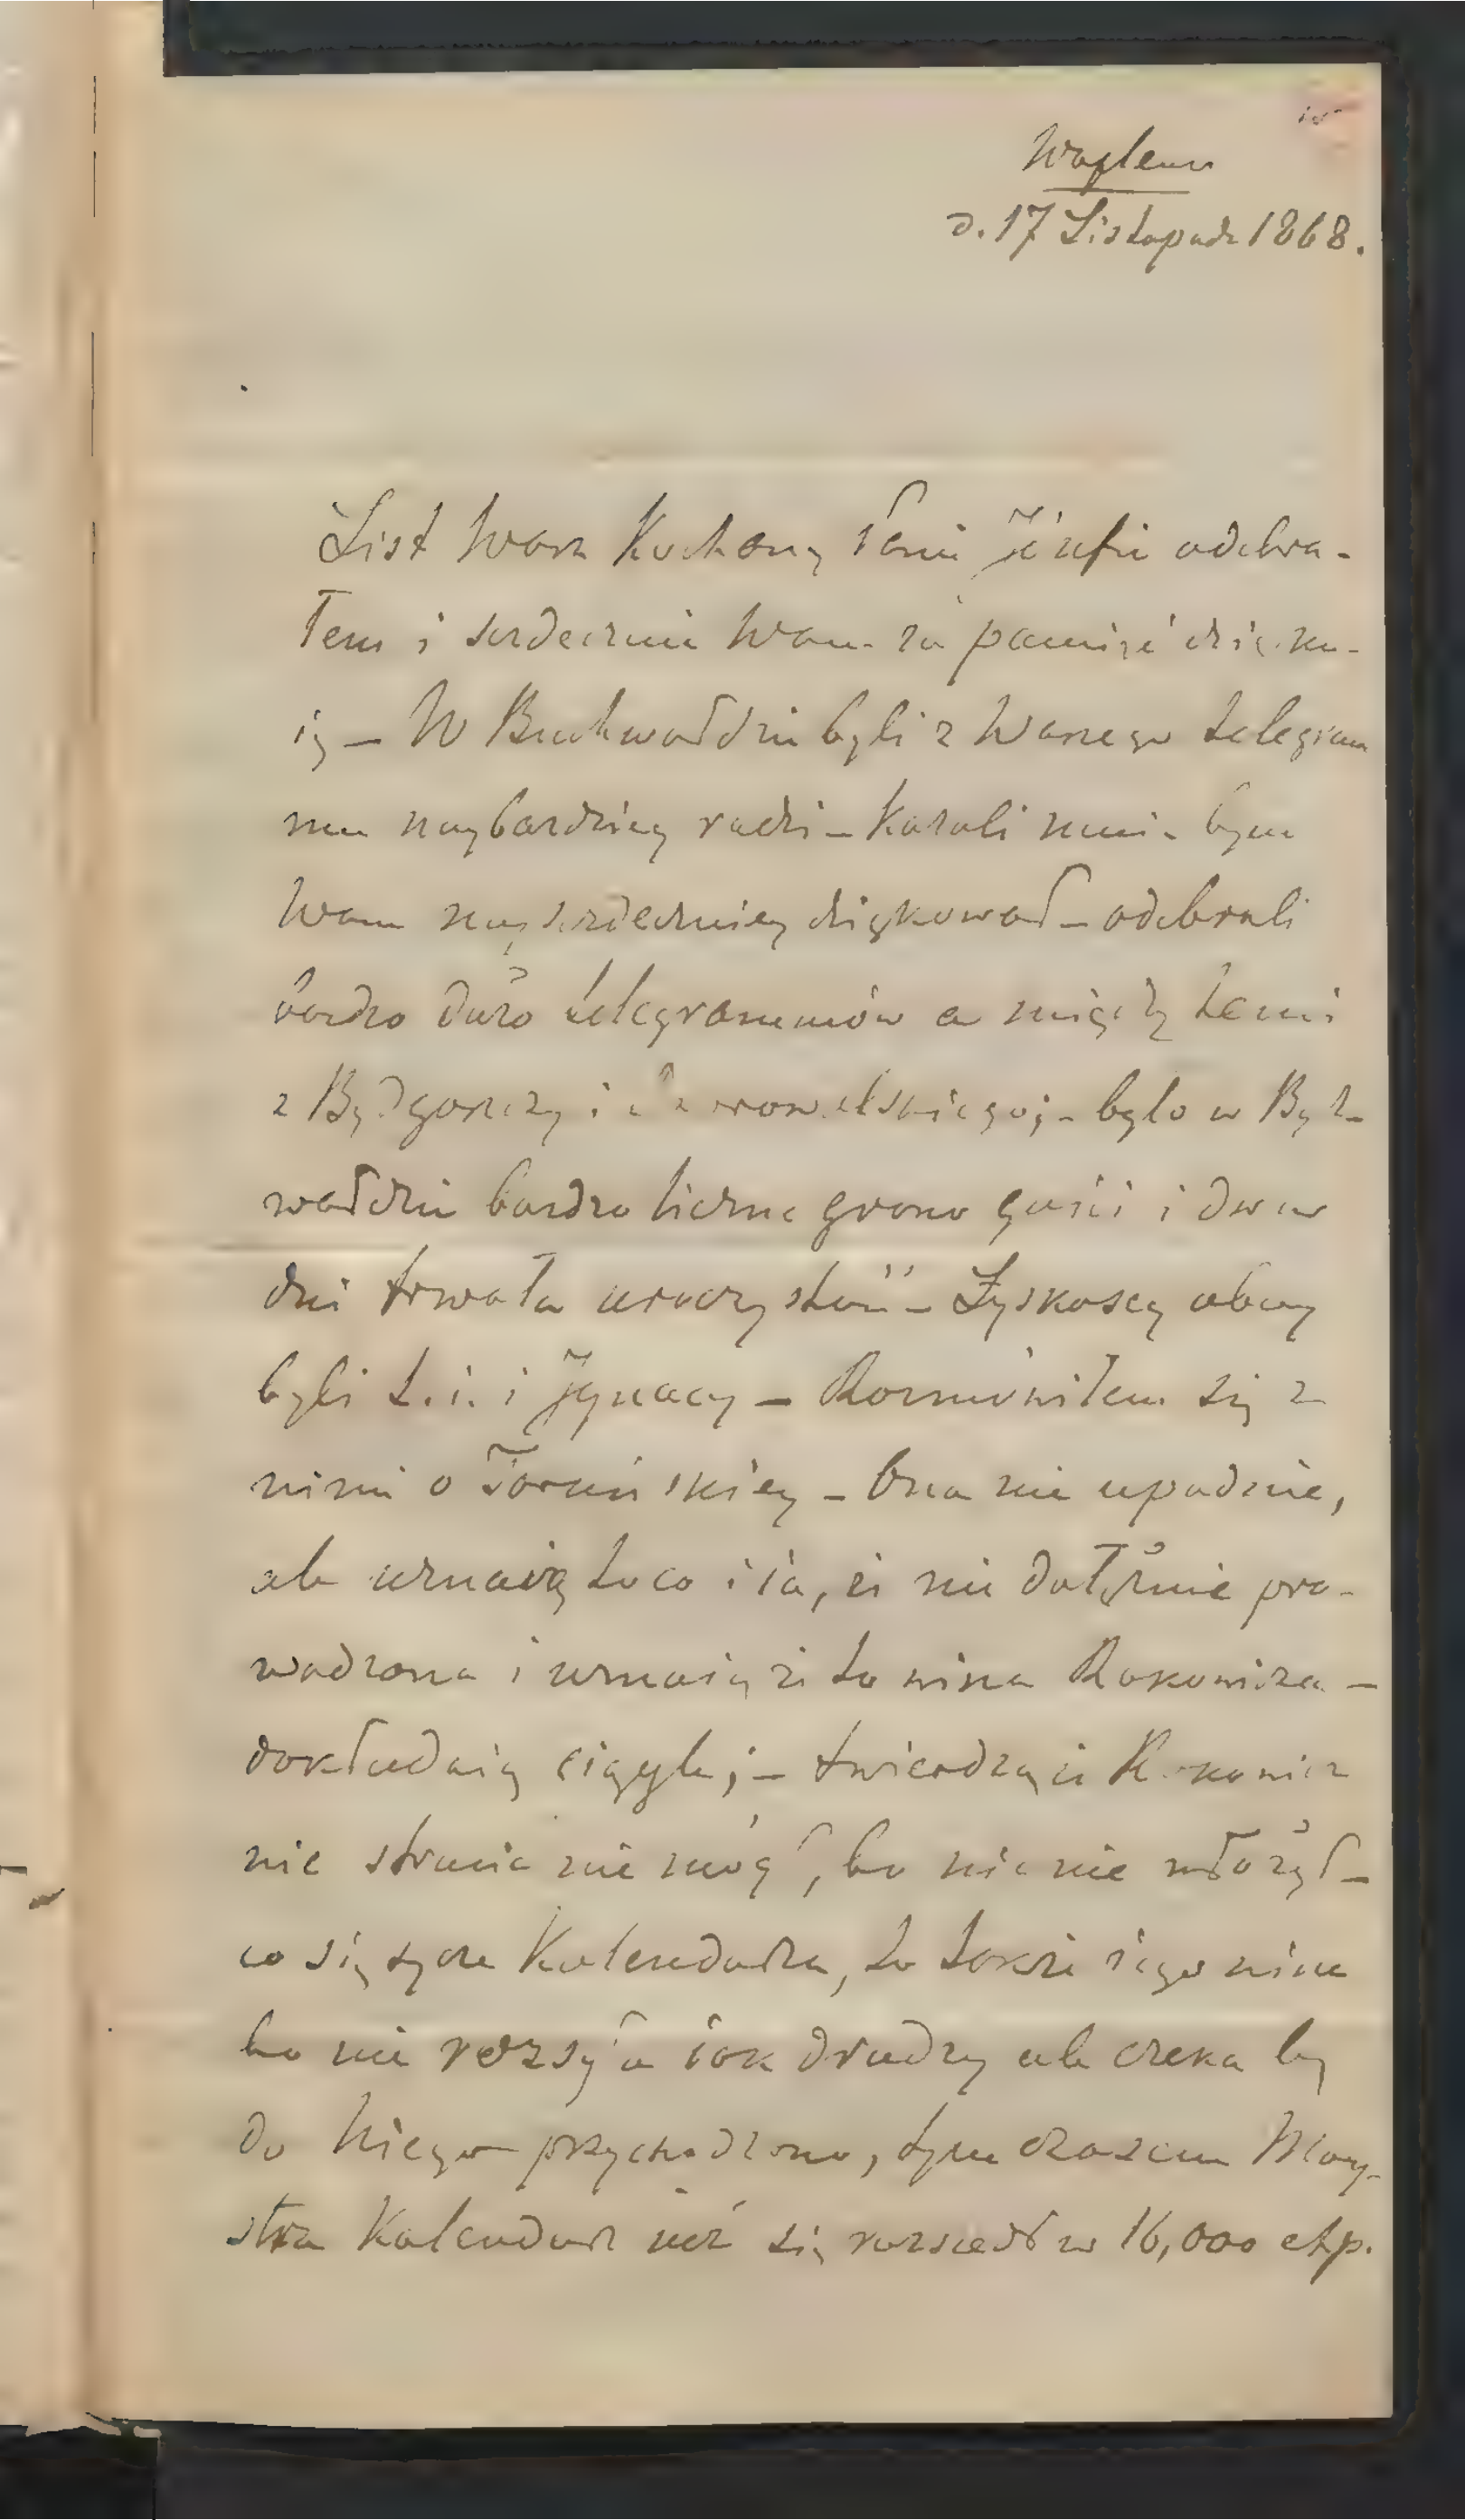 Waplewo
d. 17 Listopada 1868.
List Wasz Kochany Panie Józefie odebra-
łem i serdecznie Wam za pamięć dzięku-
ię – W Buchwałdzie byli z Waszego telegram
mu naybardziey radzi – kazali mnie bym
Wam nayserdeczniey dziękował – odebrali
bardzo dużo telegrammów a między temi
z Bydgoszczy i – było w Buch-
wałdzie bardzo liczne grono gości i dwa
dni trwała uroczystość – Łyskoscy obay
byli t. i. i Ignacy – Rozmówiłem się z
nimi o Toruńskiey – Ona nie upadnie,
ale uznaią to co i ia, że nie dołężnie pro-
wadzona i uznaią że to wina Rakowicza –
dokładaią ciągle; – twierdzą że Rakowicz
nic stracić nie mógł, bo nic nie włożył –
co się tycze Kalendarza, to także iego wina
bo nie rozsyła iak drudzy ale czeka by
do Niego przychodzono, tym czasem May-
stra Kalendarz już się rozszedł w 16,000 exp.